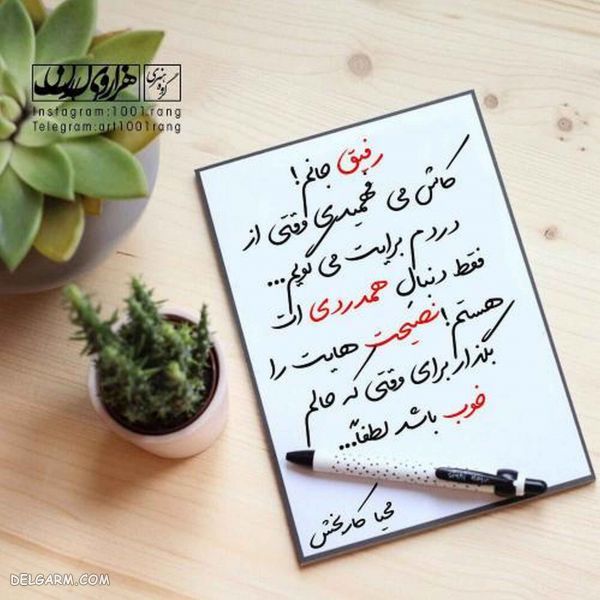 گروه هنری هزار و یک رنگ
Instagram:1001rang
Telegram:art1001rang
رفیق جانم!
کاش می فهمیدی وقتی از
دردم برایت می گویم...
فقط دنبال همدردی ات
هستم! نصیحت هایت را
بگذار برای وقتی که حالم
خوب باشد لطفاً...
محیا کاربخش
DELGARM.COM